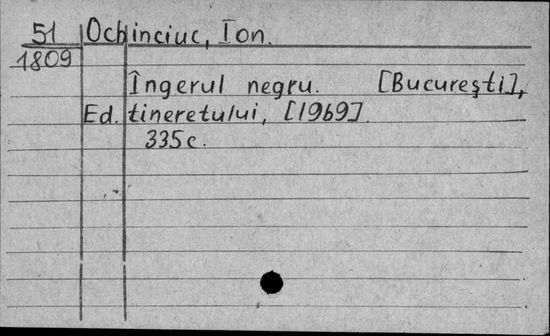 51 Ochinciuc, Ion.
1809
Îngerul negru. [Bucureşti],
Ed. tineretului, [1969].
335c.